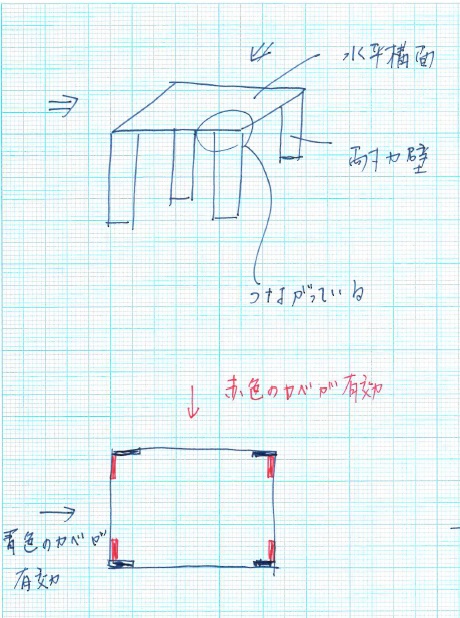 水平構面
耐力壁
つながっている
赤色のカベが有効
青色のカベが
有効